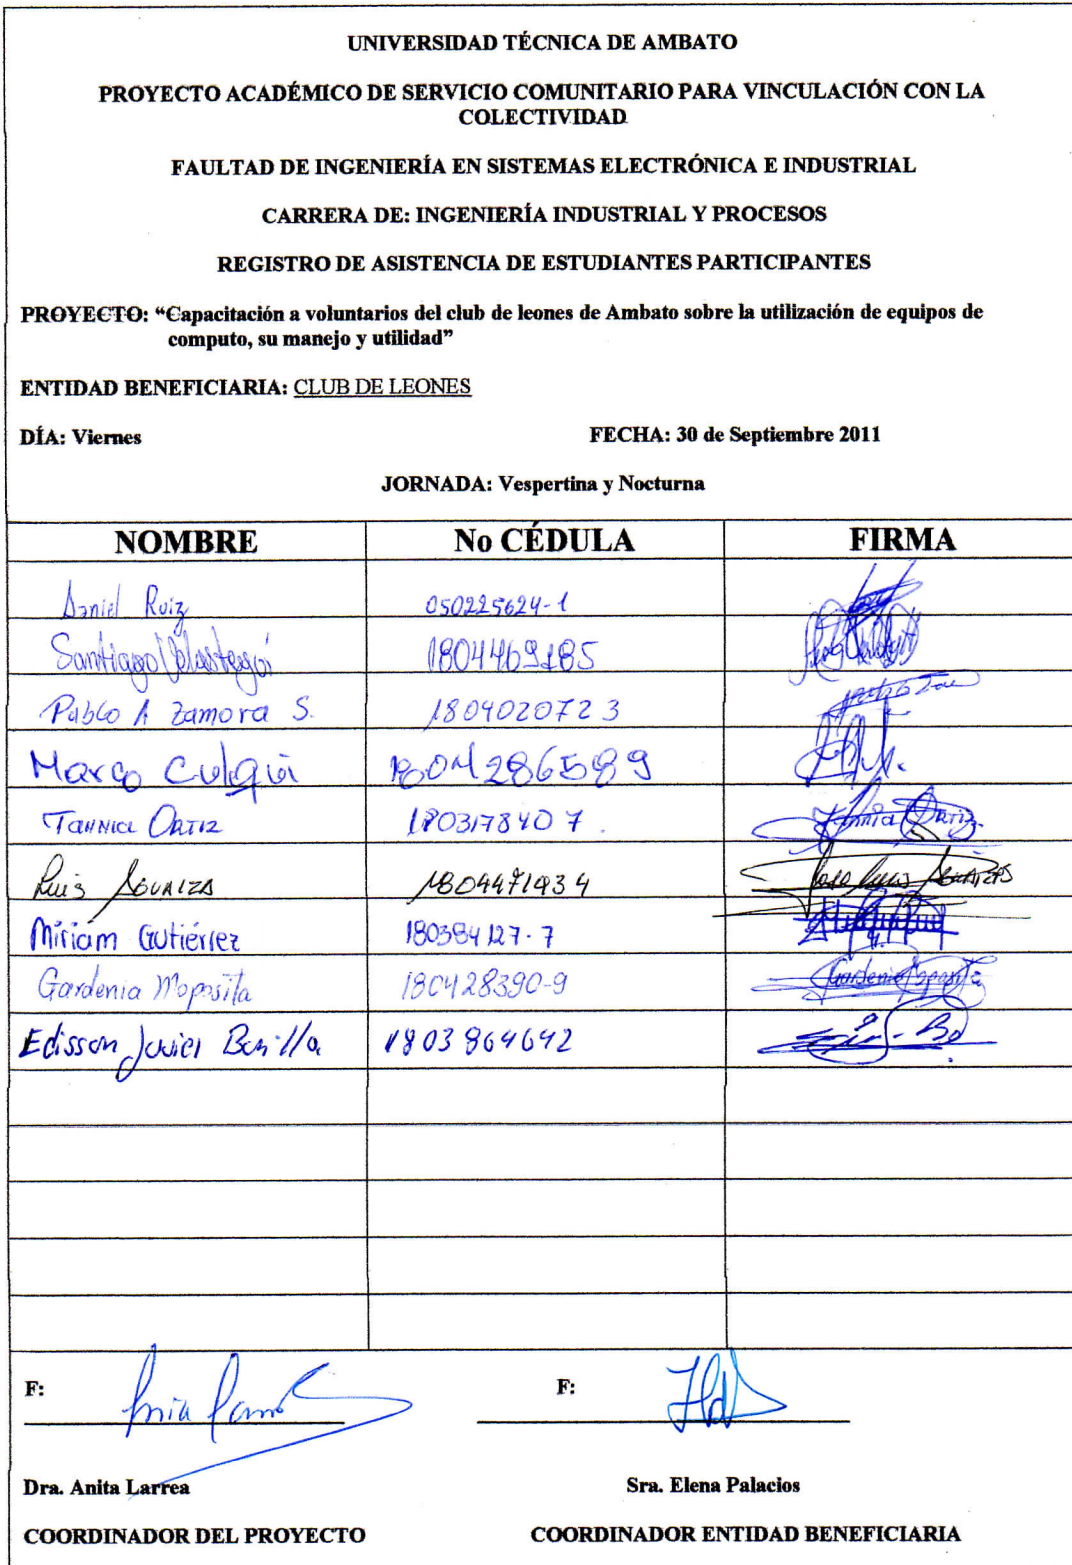 UNIVERSIDAD TÉCNICA DE AMBATO
PROYECTO ACADÉMICO DE SERVICIO COMUNITARIO PARA VINCULACIÓN CON LA
COLECTIVIDAD
FAULTAD DE INGENIERÍA EN SISTEMAS ELECTRÓNICA E INDUSTRIAL
CARRERA DE: INGENIERÍA INDUSTRIAL Y PROCESOS
REGISTRO DE ASISTENCIA DE ESTUDIANTES PARTICIPANTES
PROYECTO: “Capacitación a voluntarios del club de leones de Ambato sobre la utilización de equipos de
computo, su manejo y utilidad”
ENTIDAD BENEFICIARIA: CLUB DE LEONES
DÍA: Viernes FECHA: 30 de Septiembre 2011
JORNADA: Vespertina y Nocturna
NOMBRE No CÉDULA FIRMA
Daniel Ruiz 050225624-1
Santiago Velastegui 1804469185
Pablo A Zamora S. 1804020723
Marco Culqui 1804286589
Tannia Ortiz 180317840 7. Tannia Ortiz
Luis 1804471934 Jose Luis
Miriam Gutiérrez 180384127-7
Gardenia Moposita 180428390-9 Gardenia Moposita
Edisson Javier Bonilla 1803864642
F: F:
Dra. Anita Larrea Sra. Elena Palacios
COORDINADOR DEL PROYECTO COORDINADOR ENTIDAD BENEFICIARIA